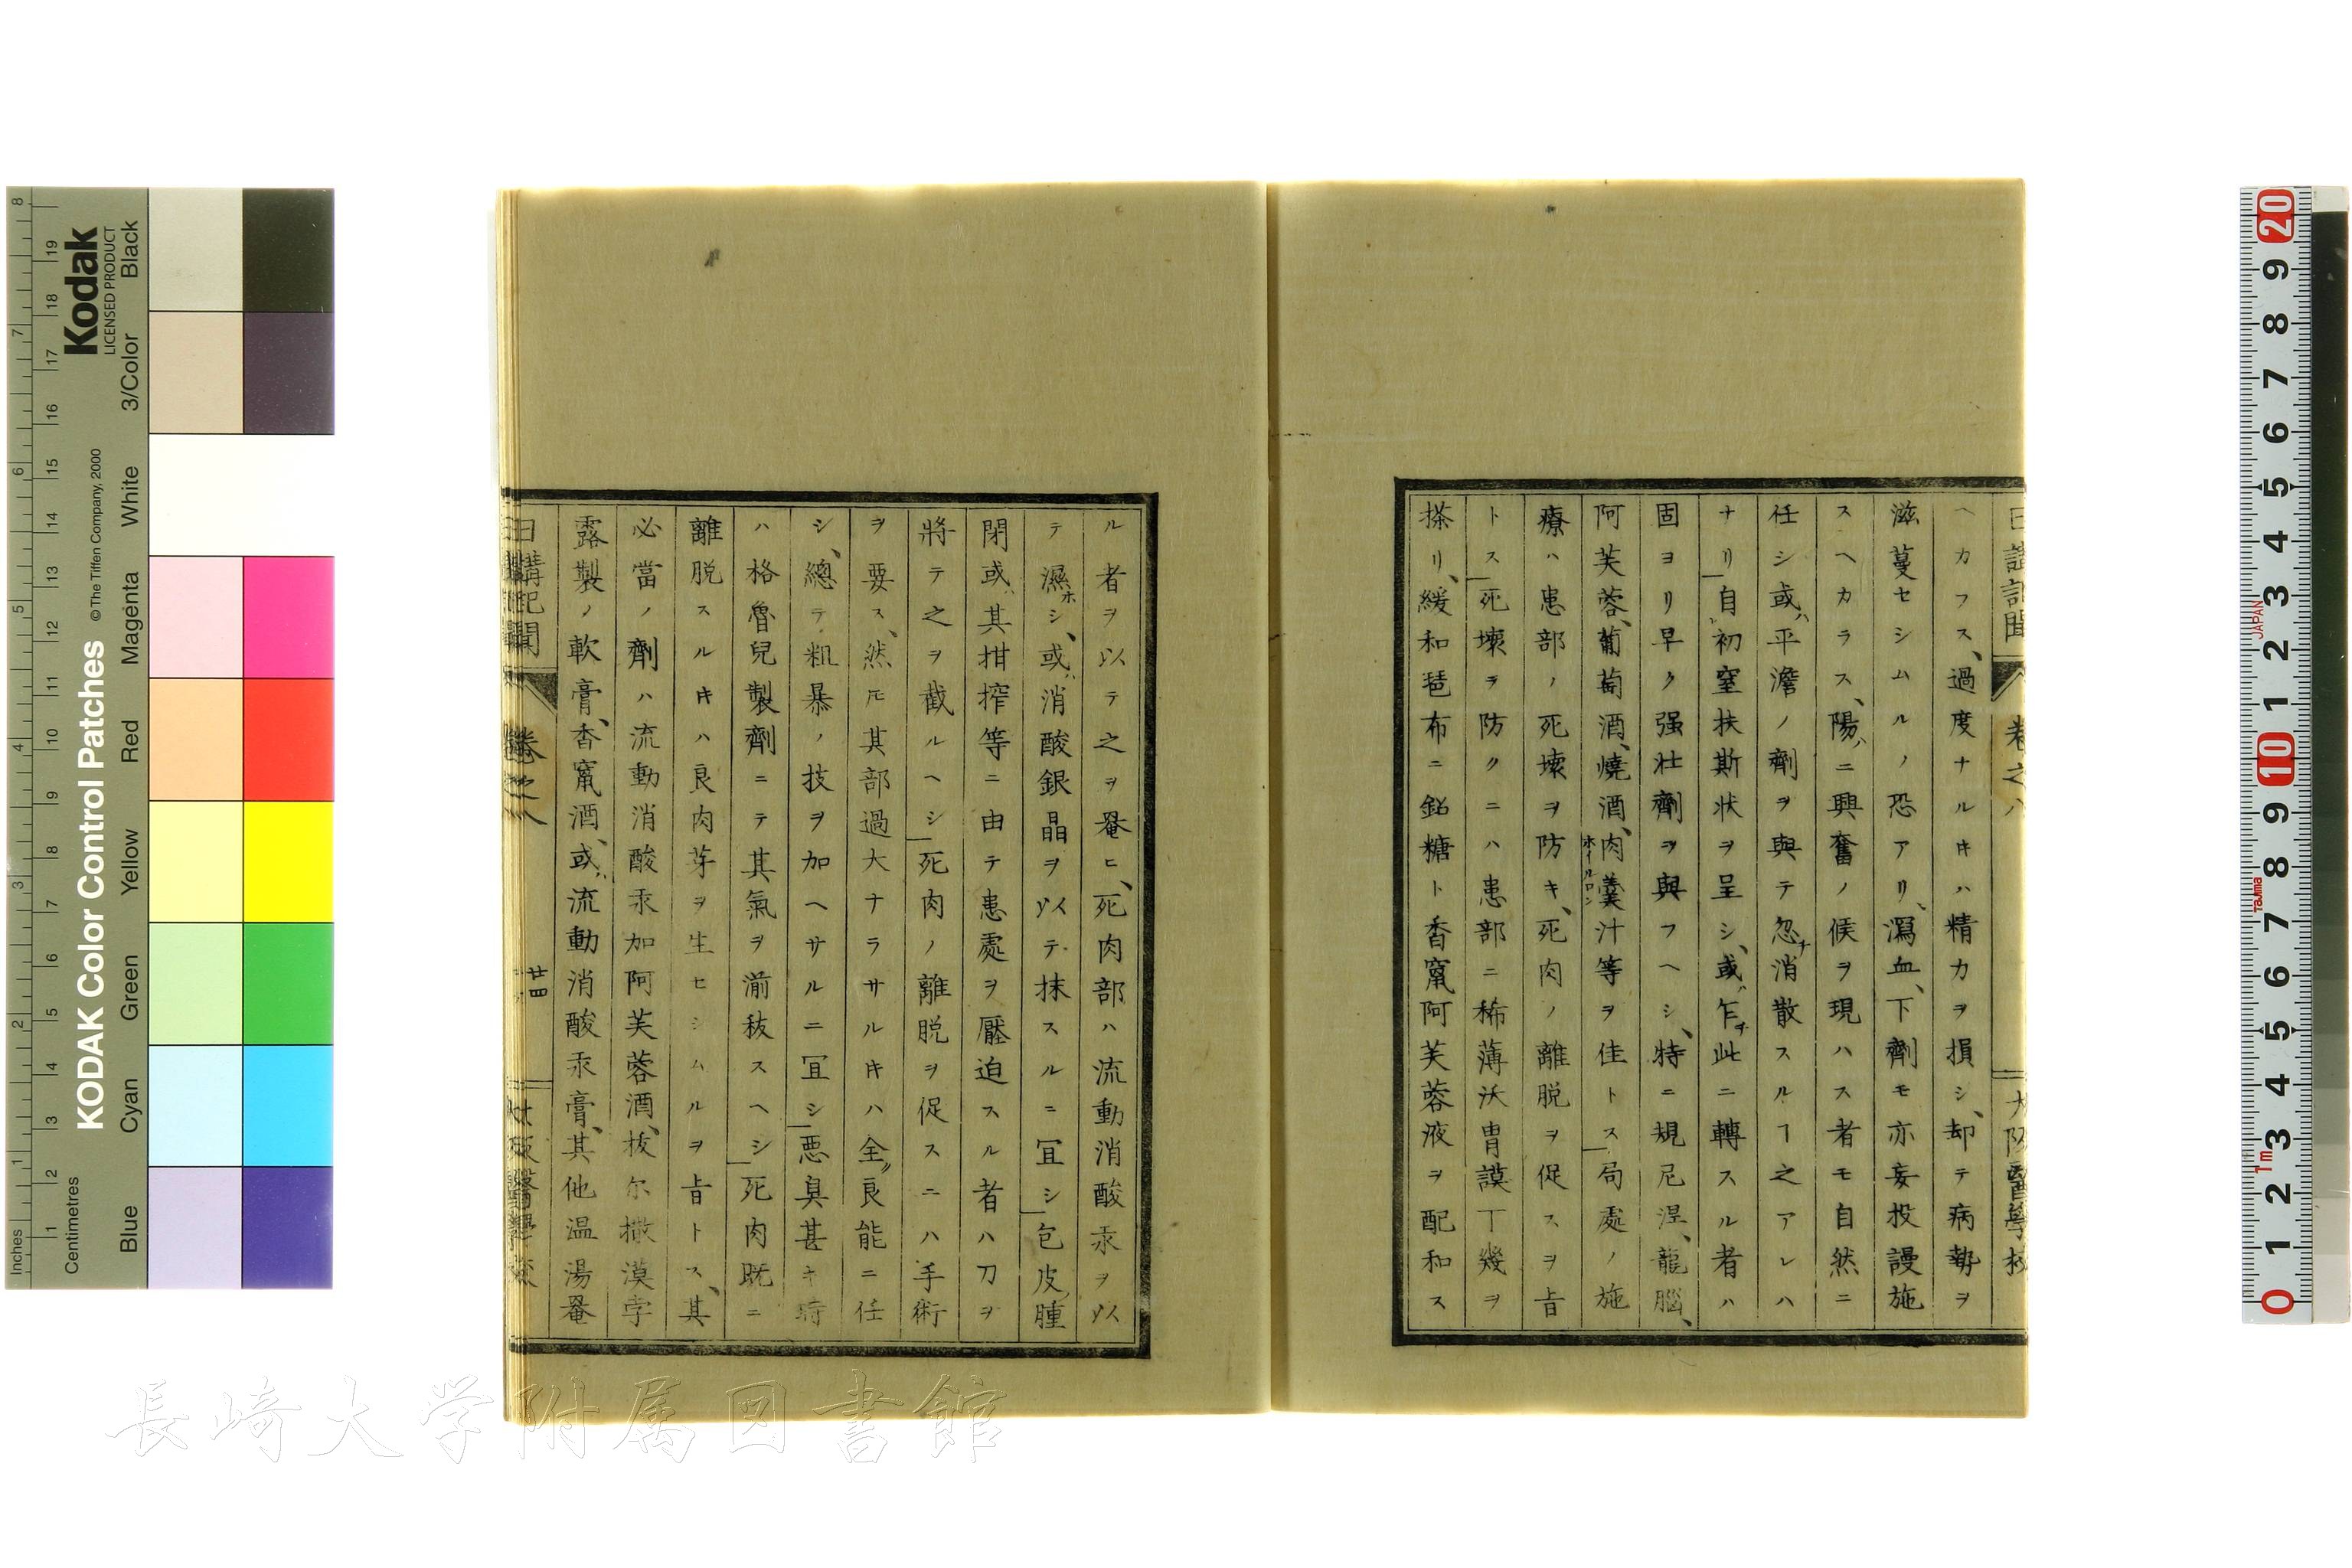 日講記聞 卷之八 大阪醫學校
ヘカフス、過度ナルキハ精力ヲ損シ、却テ病勢ヲ
滋蔓セシムルノ恐アリ、瀉血、下劑モ亦妄投謾施
スヘカラス、陽ニ興奮ノ候ヲ現ハス者モ自然ニ
任シ或ハ平澹ノ劑ヲ與テ忽チ消散スルヿ之アレハ
ナリ」自初窒扶斯状ヲ呈シ、或ハ乍チ此ニ轉スル者ハ
固ヨリ早ク强壮劑ヲ與フヘシ、特ニ規尼涅、龍腦、
阿芙蓉、葡萄酒、燒酒、肉羹汁等ヲ佳トス」局處ノ施
ホイルロン
療ハ患部ノ死壊ヲ防キ、死肉ノ離脱ヲ促スヲ旨
トス」死壊ヲ防クニハ患部ニ稀薄沃胄謨丁幾ヲ
搽リ、緩和琶布ニ鉛糖ト香竄阿芙蓉液ヲ配和ス
ル者ヲ以テ之ヲ罨ヒ、死肉部ハ流動消酸汞ヲ以
テ濕ホシ、或ハ消酸銀晶ヲ以テ抹スルニ冝シ」包皮腫
閉或ハ其拑搾等ニ由テ患處ヲ壓迫スル者ハ刀ヲ
將テ之ヲ截ルヘシ」死肉ノ離脱ヲ促スニハ手術
ヲ要ス、然モ其部過大ナラサルキハ全ク良能ニ任
シ、總テ粗暴ノ技ヲ加ヘサルニ冝シ」悪臭甚キ時
ハ格魯兒製劑ニテ其氣ヲ湔秡スヘシ」死肉既ニ
離脱スルキハ良肉芽ヲ生セシムルヲ旨トス、其
必當ノ劑ハ流動消酸汞加阿芙蓉酒、拔尓撒漠孛
露製ノ軟膏、香竄酒、或ハ流動消酸汞膏、其他温湯罨
日講記聞 卷之八 廿四 大阪醫學校
Kodak
LICENSED PRODUCT
KODAK Color Control Patches
©The Tiffen Company, 2000
Inches
Centimetres
Blue Cyan Green Yellow Red Magenta White 3/Color Black
JAPAN
Tajima
1m
長崎大学附属図書館